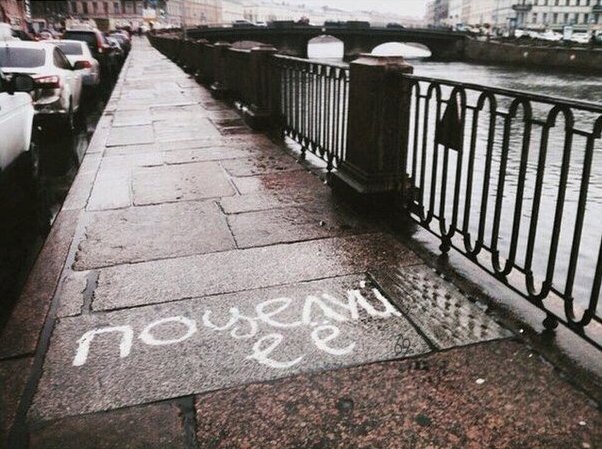 поцелуй
её